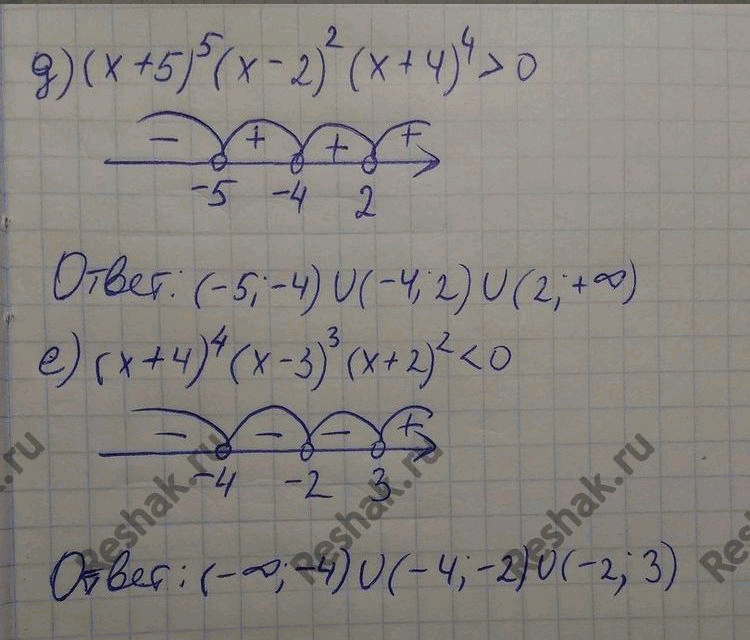 д) (x+5)⁵(x-2)²(x+4)⁴>0
- + + +
-5 -4 2
Ответ: (-5; -4) ∪ (-4; 2) ∪ (2; +∞)
е) (x+4)⁴(x-3)³(x+2)²<0
- - - +
-4 -2 3
Ответ: (-∞; -4) ∪ (-4; -2) ∪ (-2; 3)
Reshak.ru
Reshak.ru
Reshak.ru